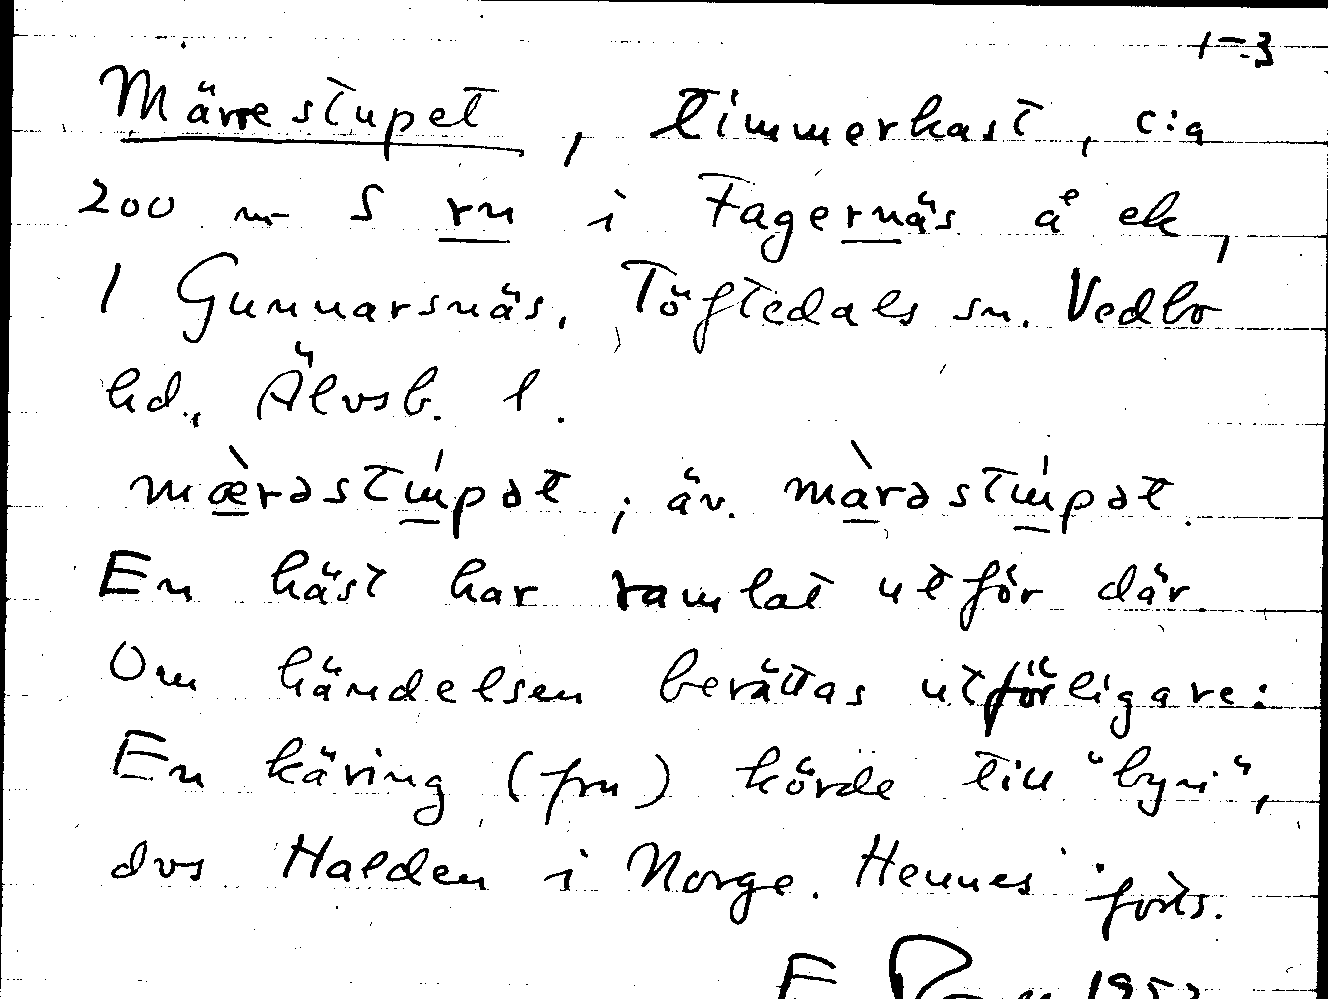 1-3
Märrestupet, timmerkast, c:a
200 m S rn i Fagernäs å ek,
1 Gunnarsnäs, Töftedals sn. Vedbo
hd., Älvsb. l.
mæ̀rəstɯ́pət; äv. màrəstɯ́pət.
En häst har ramlat utför där.
Om händelsen berättas utförligare:
En käring (fru) körde till "byn",
dvs Halden i Norge. Hennes forts.